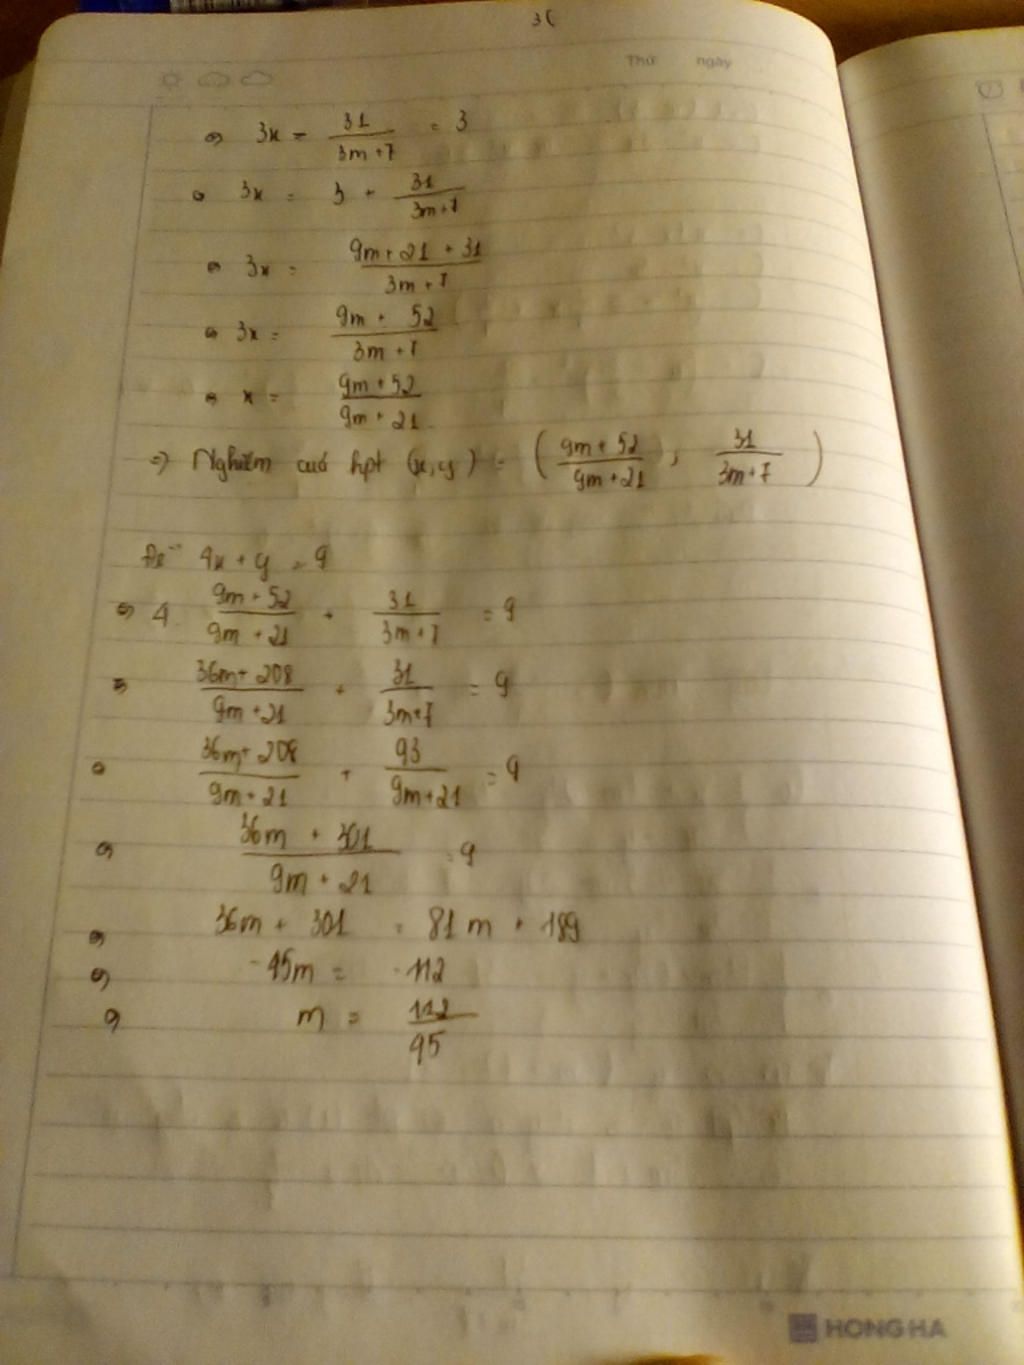 Thứ ngày
⇔ 3x - 31/(3m+7) = 3
⇔ 3x = 3 + 31/(3m+7)
⇔ 3x = (9m+21+31)/(3m+7)
⇔ 3x = (9m+52)/(3m+7)
⇔ x = (9m+52)/(9m+21)
=> Nghiệm của hpt (x,y) = ((9m+52)/(9m+21); 31/(3m+7))
Để 4x+y = 9
⇔ 4. (9m+52)/(9m+21) + 31/(3m+7) = 9
⇔ (36m+208)/(9m+21) + 31/(3m+7) = 9
⇔ (36m+208)/(9m+21) + 93/(9m+21) = 9
⇔ (36m+301)/(9m+21) = 9
⇔ 36m + 301 = 81m + 189
⇔ -45m = -112
⇔ m = 112/45
HONG HA